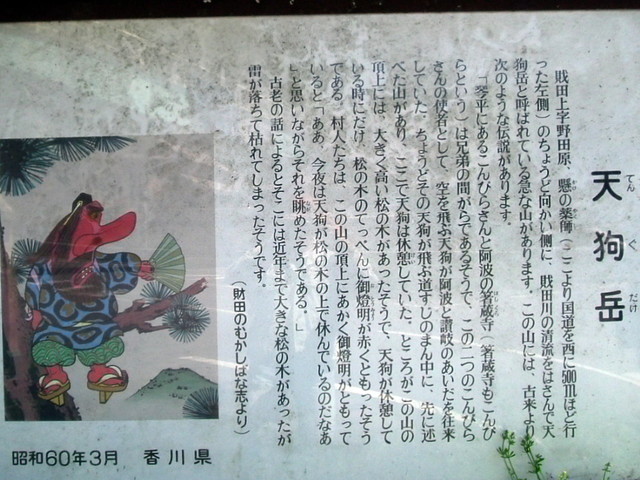 天狗岳
てんぐだけ
財田上字野田原、懸の薬師（ここより国道を西に500mほど行
った左側）のちょうど向かい側に、財田川の清流をはさんで天
狗岳と呼ばれている急な山があります。この山には、古来より
次のような伝説があります。
「琴平にあるこんぴらさんと阿波の箸蔵寺（箸蔵寺もこんぴ
らという）は兄弟の間がらであるそうで、この二つのこんぴら
さんの使者として、空を飛ぶ天狗が阿波と讃岐のあいだを往来
していた。ちょうどその天狗が飛ぶ道すじのまん中に、先に述
べた山があり、ここで天狗は休憩していた。ところがこの山の
頂上には、大きく高い松の木があったそうで、天狗が休憩して
いる時にだけ、松の木のてっぺんに御燈明が赤くともったそう
である。村人たちは、この山の頂上にあかく御燈明がともって
いると「ああ、今夜は天狗が松の木の上で休んでいるのだなあ
」と思いながらそれを眺めたそうである。」
古老の話によるとそこには近年まで大きな松の木があったが
雷が落ちて枯れてしまったそうです。
（財田のむかしばなし志より）
昭和60年3月 香川県